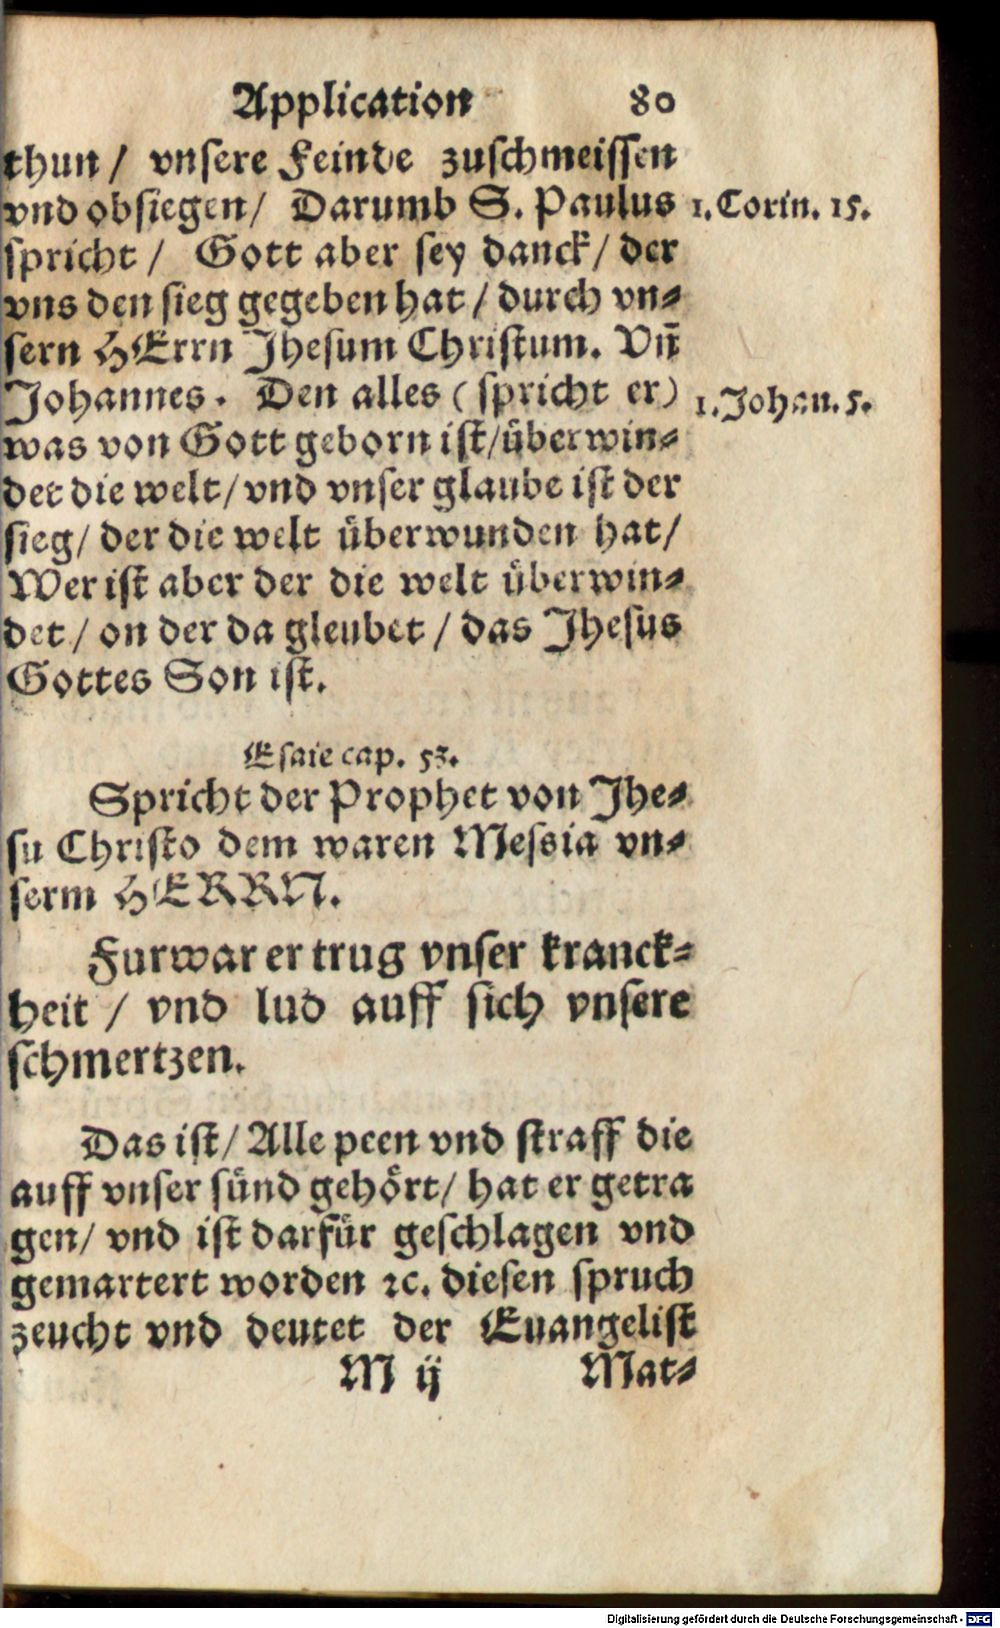 Application 80
thun / vnsere Feinde zuschmeissen
vnd obsiegen / Darumb S. Paulus 1. Corin. 15.
spricht / Gott aber sey danck / der
vns den sieg gegeben hat / durch vn⸗
sern HErrn Jhesum Christum. Vñ
Johannes. Den alles (spricht er) 1. Johan. 5.
was von Gott geborn ist / vͤberwin⸗
det die welt / vnd vnser glaube ist der
sieg / der die welt vͤberwunden hat /
Wer ist aber der die welt vͤberwin⸗
det / on der da gleubet / das Jhesus
Gottes Son ist.
Esaie cap. 53.
Spricht der Prophet von Jhe⸗
su Christo dem waren Messia vn⸗
serm HERRN.
Furwar er trug vnser kranck⸗
heit / vnd lud auff sich vnsere
schmertzen.
Das ist / Alle peen vnd straff die
auff vnser suͤnd gehoͤrt / hat er getra
gen / vnd ist darfuͤr geschlagen vnd
gemartert worden ꝛc. diesen spruch
zeucht vnd deutet der Euangelist
M ij Mat⸗
Digitalisierung gefördert durch die Deutsche Forschungsgemeinschaft - DFG